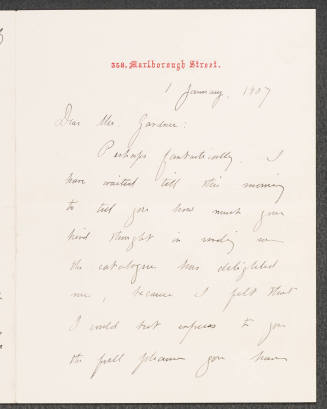 358, Marlborough Street.
1 January, 1907
Dear Mrs. Gardner:
Perhaps fantastically, I
have waited till this morning
to tell you how much your
kind thought in sending me
the catalogue has delighted
me, because I felt that
I could not express to you
the full pleasure you have